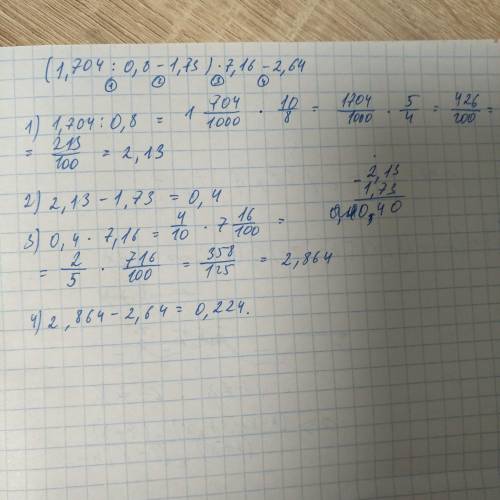 (1,704 : 0,8 - 1,73) · 7,16 - 2,64
① ② ③ ④
1) 1,704 : 0,8 = 1 704/1000 · 10/8 = 1704/1000 · 5/4 = 426/200 =
= 213/100 = 2,13
2) 2,13 - 1,73 = 0,4
- 2,13
1,73
0,40
3) 0,4 · 7,16 = 4/10 · 7 16/100 =
= 2/5 · 716/100 = 358/125 = 2,864
4) 2,864 - 2,64 = 0,224.